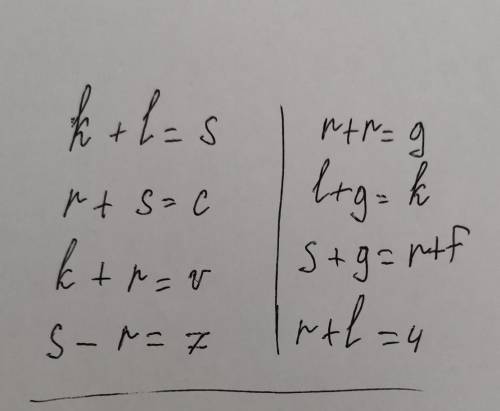 k + l = s
r + s = c
k + r = v
s - r = 7
r+r = g
l+g = k
s + g = r+f
r+l = 4